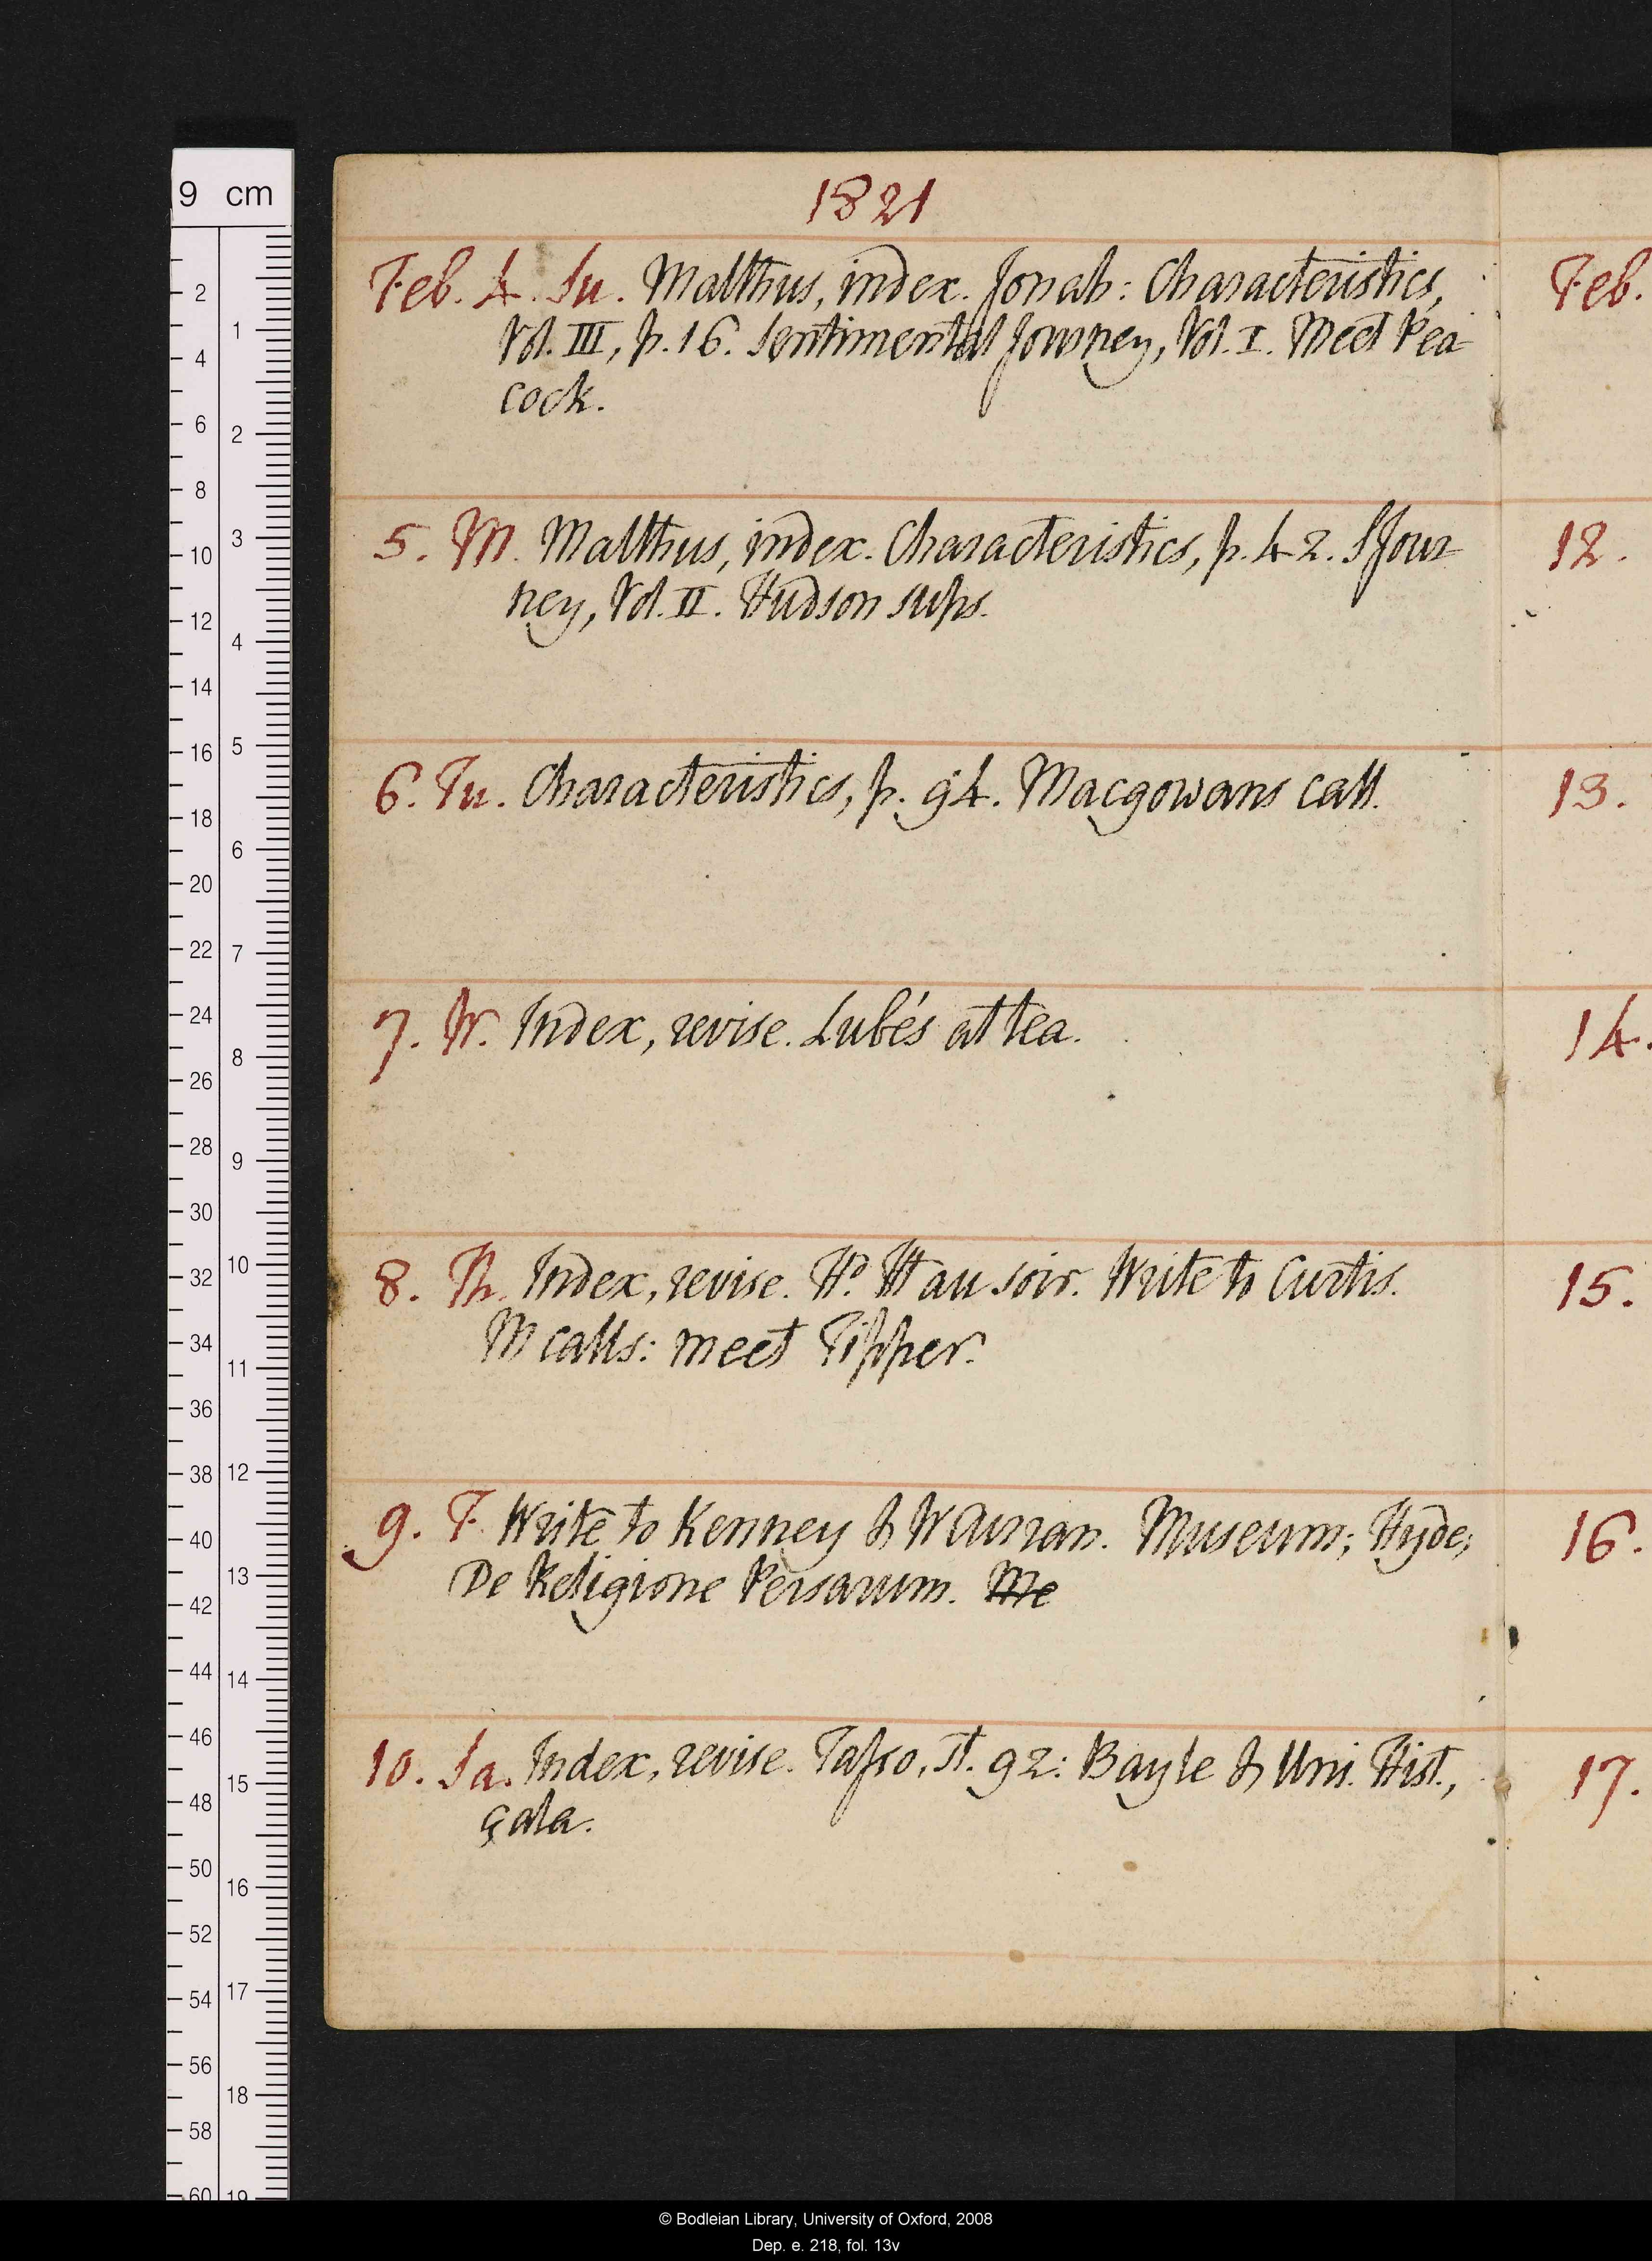 1821
Feb. 4. Su. Malthus, index. Jonah: Characteristics,
Vol. III, p. 16. Sentimental Journey, Vol. I. Meet Pea
cock.
5. M. Malthus, index. Characteristics, p. 42. S Jour
ney, Vol. II. Hudson sups.
6. Tu. Characteristics, p. 94. Macgowans call.
7. W. Index, revise. Lubés at tea.
8. Th. Index, revise. Hd. H au soir. Write to Curtis.
M calls: meet Tipper.
9. F. Write to Kenney & W Curran. Museum; Hyde;
De Religione Persarum. Me
10. Sa. Index, revise. Tasso, st. 92: Bayle & Uni. Hist.,
çala.
Feb.
12.
13.
14.
15.
16.
17.
9 cm
2
4
6
8
10
12
14
16
18
20
22
24
26
28
30
32
34
36
38
40
42
44
46
48
50
52
54
56
58
60
1
2
3
4
5
6
7
8
9
10
11
12
13
14
15
16
17
18
19
© Bodleian Library, University of Oxford, 2008
Dep. e. 218, fol. 13v